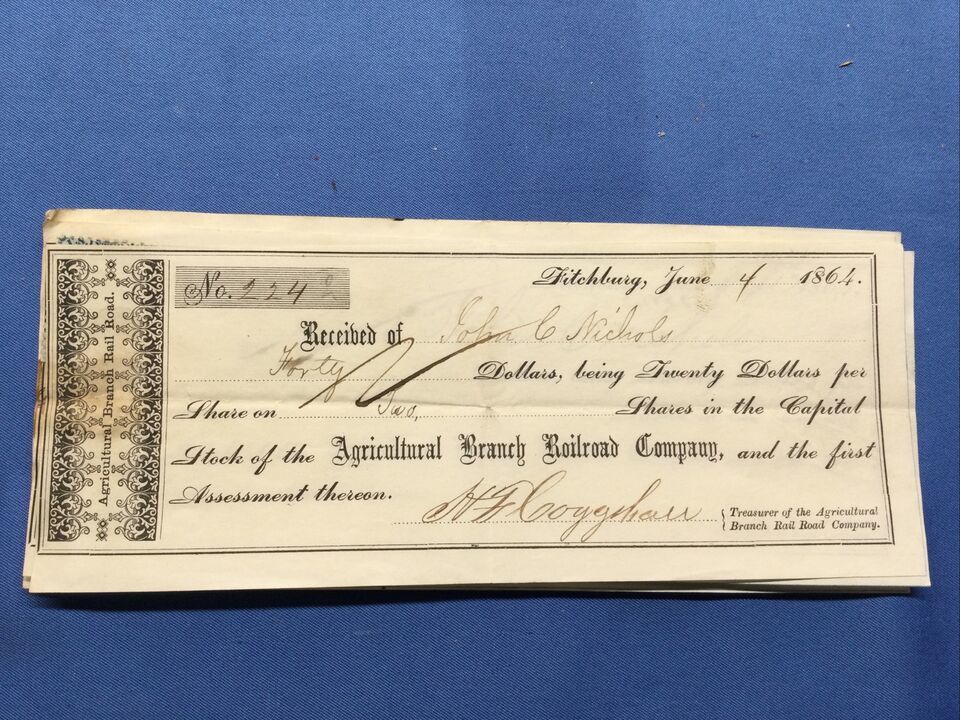 Agricultural Branch Rail Road.
No. 224
Fitchburg, June 4 1864.
Received of John C Nichols
Forty Dollars, being Twenty Dollars per
Share on Two, Shares in the Capital
Stock of the Agricultural Branch Roilroad Company, and the first
Assessment thereon.
H F Coggshall
Treasurer of the Agricultural
Branch Rail Road Company.